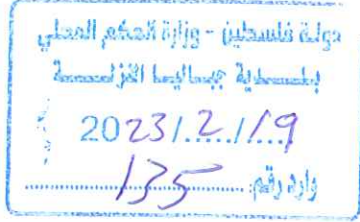 دولة فلسطين - وزارة الحكم المحلي
بلدية جباليا النزلة
2023/2/19
وارد رقم: 135